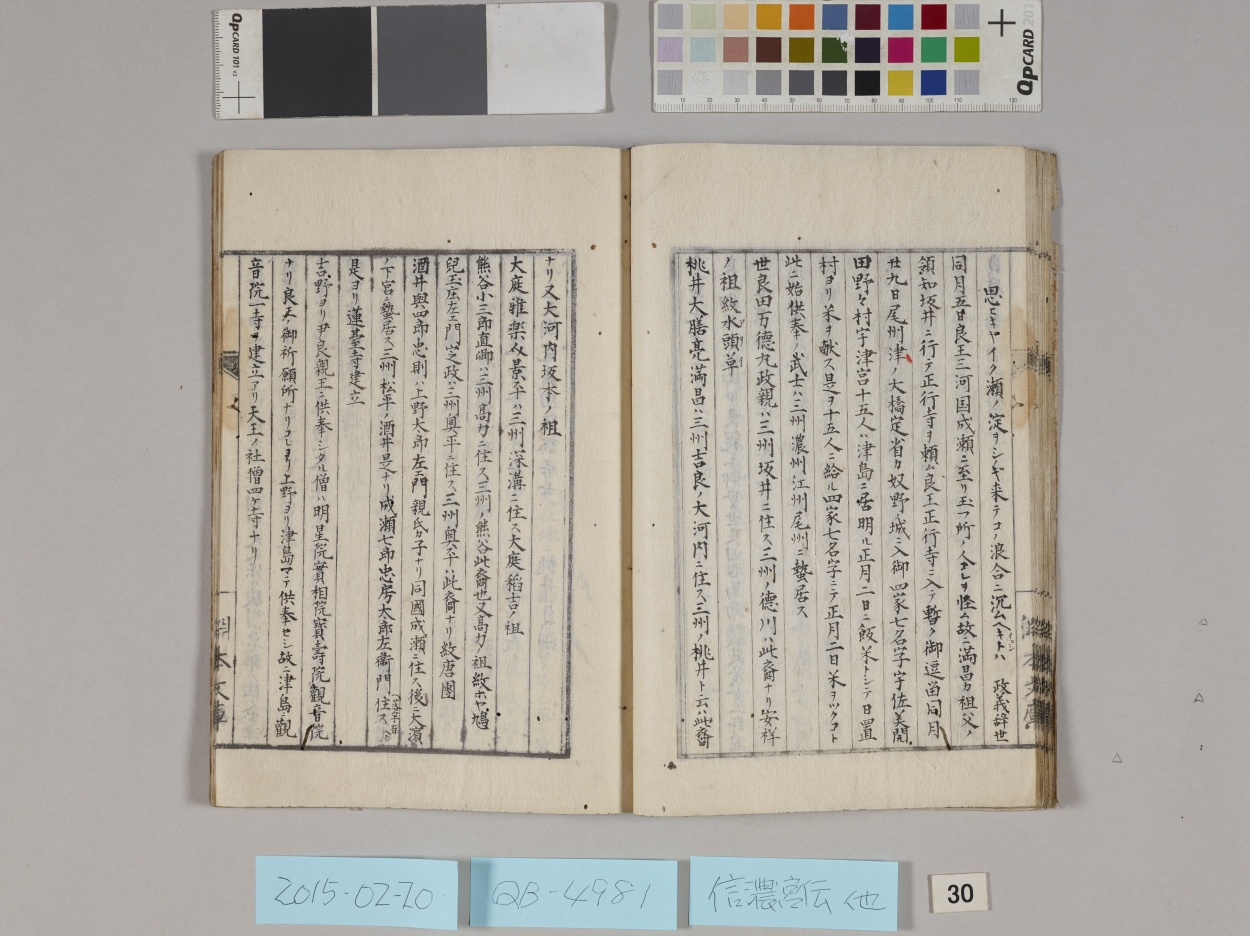 思ヒキヤイク瀬ノ淀ヲシノギ来テコノ浪合ニ沉ムヘキトハ 政義辞世
同月五日良王三河国成瀬ニ至リ玉フ所ノ人コレヲ怪ム故ニ満昌カ祖父ノ
領知坂井ニ行テ正行寺ヲ頼ム良王正行寺ニ入テ暫ク御逗留同月
廿九日尾州津ノ大橋定省カ奴野ノ城ニ入御四家七名字宇佐美開
田野々村宇津宮十五人ハ津島ニ居明ル正月二日ニ飯米トシテ日置
村ヨリ米ヲ献ス是ヲ十五人ニ給ル四家七名字ニテ正月二日米ヲツクコト
此ニ始供奉ノ武士ハ三州濃州江州尾州ニ蟄居ス
世良田万徳丸政親ハ三州坂井ニ住ス三州ノ徳川ハ此裔ナリ安祥
ノ祖紋水頭草
桃井大膳亮満昌ハ三州吉良ノ大河内ニ住ス三州ノ桃井ト云ハ此裔
ナリ又大河内坂本ノ祖
大庭雅楽介景平ハ三州深溝ニ住ス大庭稲吉ノ祖
熊谷小三郎直郷ハ三州高力ニ住ス三州ノ熊谷此裔也又高力ノ祖紋ホヤニ鳩
児玉庄左エ門定政ハ三州奥平ニ住ス三州ノ奥平ハ此裔ナリ紋唐團
酒井與四郎忠則ハ上野太郎左エ門親氏カ子ナリ同國成瀬ニ住ス後ニ大濱
ノ下宮ニ蟄居ス三州松平ノ酒井是ナリ成瀬七郎忠房太郎左衛門住ス
是ヨリ蓮臺寺建立
吉野ヨリ尹良親王ニ供奉シタル僧ハ明星院實相院寳壽院觀音院
ナリ良王ノ御祈願所ナリコレヨリ上野ヨリ津島マテ供奉セシ故ニ津島ニ觀
音院一寺ヲ建立アリ天王ノ社僧四ケ寺ナリ
QPCARD 101 v3
QPCARD 201
2015-02-20
QB-4981
信濃宮伝 他
30